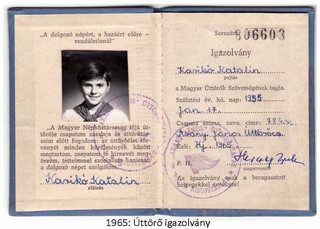 „A dolgozó népért, a hazáért előre
rendületlenül"
„A Magyar Népköztársaság ifjú
úttörője csapatom zászlaja és úttörőtársaim
előtt fogadom: az úttörőélet
törvényeit minden körülmények között
megtartom, csapatom jó hírnevét megőrzöm,
tetteimmel szocialista hazánkat,
a dolgozó népet szolgálom."
Karikó Katalin
aláírás
Sorszám: 806603
Igazolvány
Karikó Katalin
pajtás
a Magyar Úttörők Szövetségének tagja.
Születési év, hó, nap: 1955
Jan. 17.
Csapata száma, neve, címe: 
Arany János Úttörőcs.
Kelt: 1965
P. H.
csapatvezető
Az igazolvány csak a beragasztott
bélyegekkel érvényes!
1965: Úttörő igazolvány